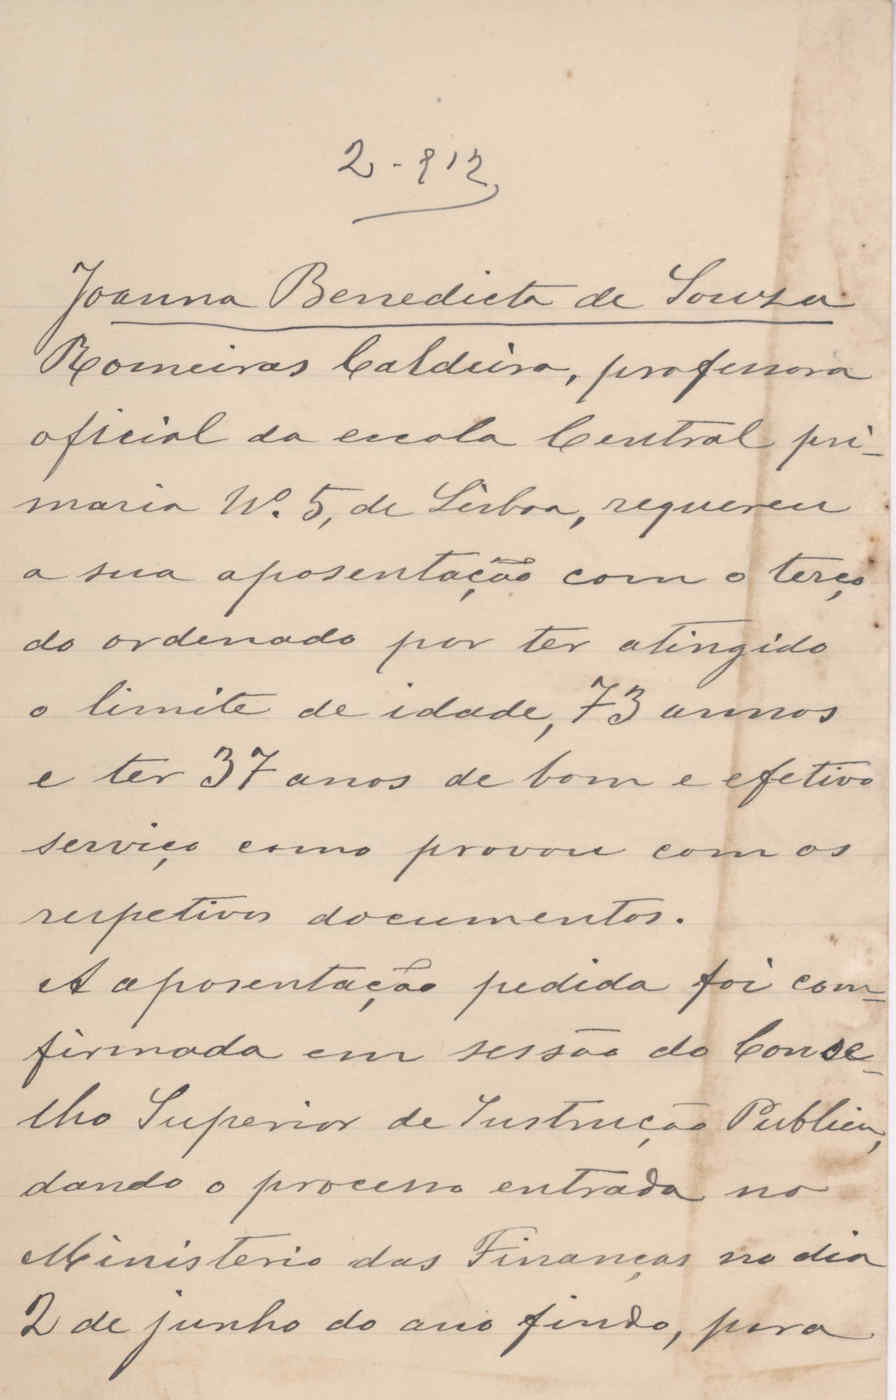 2-912
Joanna Benedicta de Souza
Romeiras Caldeira, professora
oficial da escola Central pri-
maria Nº. 5, de Lisboa, requereu
a sua aposentação com o terço
do ordenado por ter atingido
o limite de idade, 73 annos
e ter 37 anos de bom e efetivo
serviço como provou com os
respetivos documentos.
A aposentação pedida foi com-
firmada em sessão do Conse-
lho Superior de Instrução Publica,
dando o processo entrada no
Ministerio das Finanças no dia
2 de junho do ano findo, para